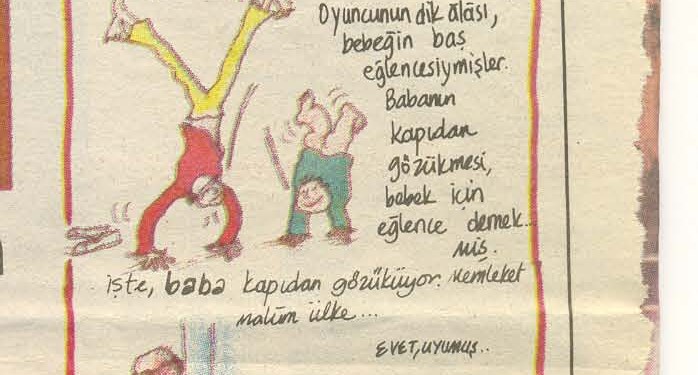 Oyuncunun dik âlâsı,
bebeğin baş
eğlencesiymişler.
Babanın
kapıdan
gözükmesi,
bebek için
eğlence demek...
miş.
işte, baba kapıdan gözüküyor. Memleket
malûm ülke...
EVET, UYUMUŞ..